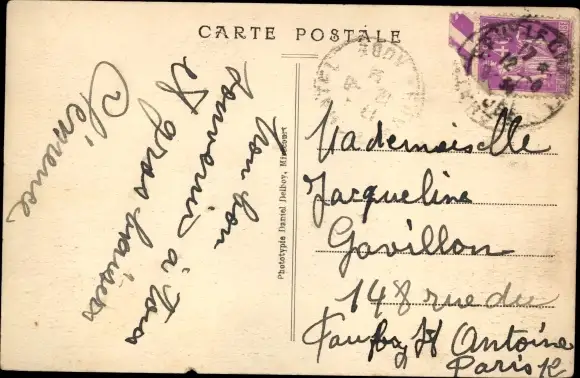 CARTE POSTALE
Mon bon
souvenir à tous
et gros baisers
Clémence
Phototypie Daniel Delboy, Mirecourt
Mademoiselle
Jacqueline
Gavillon
148 rue du
Faubg St Antoine
Paris